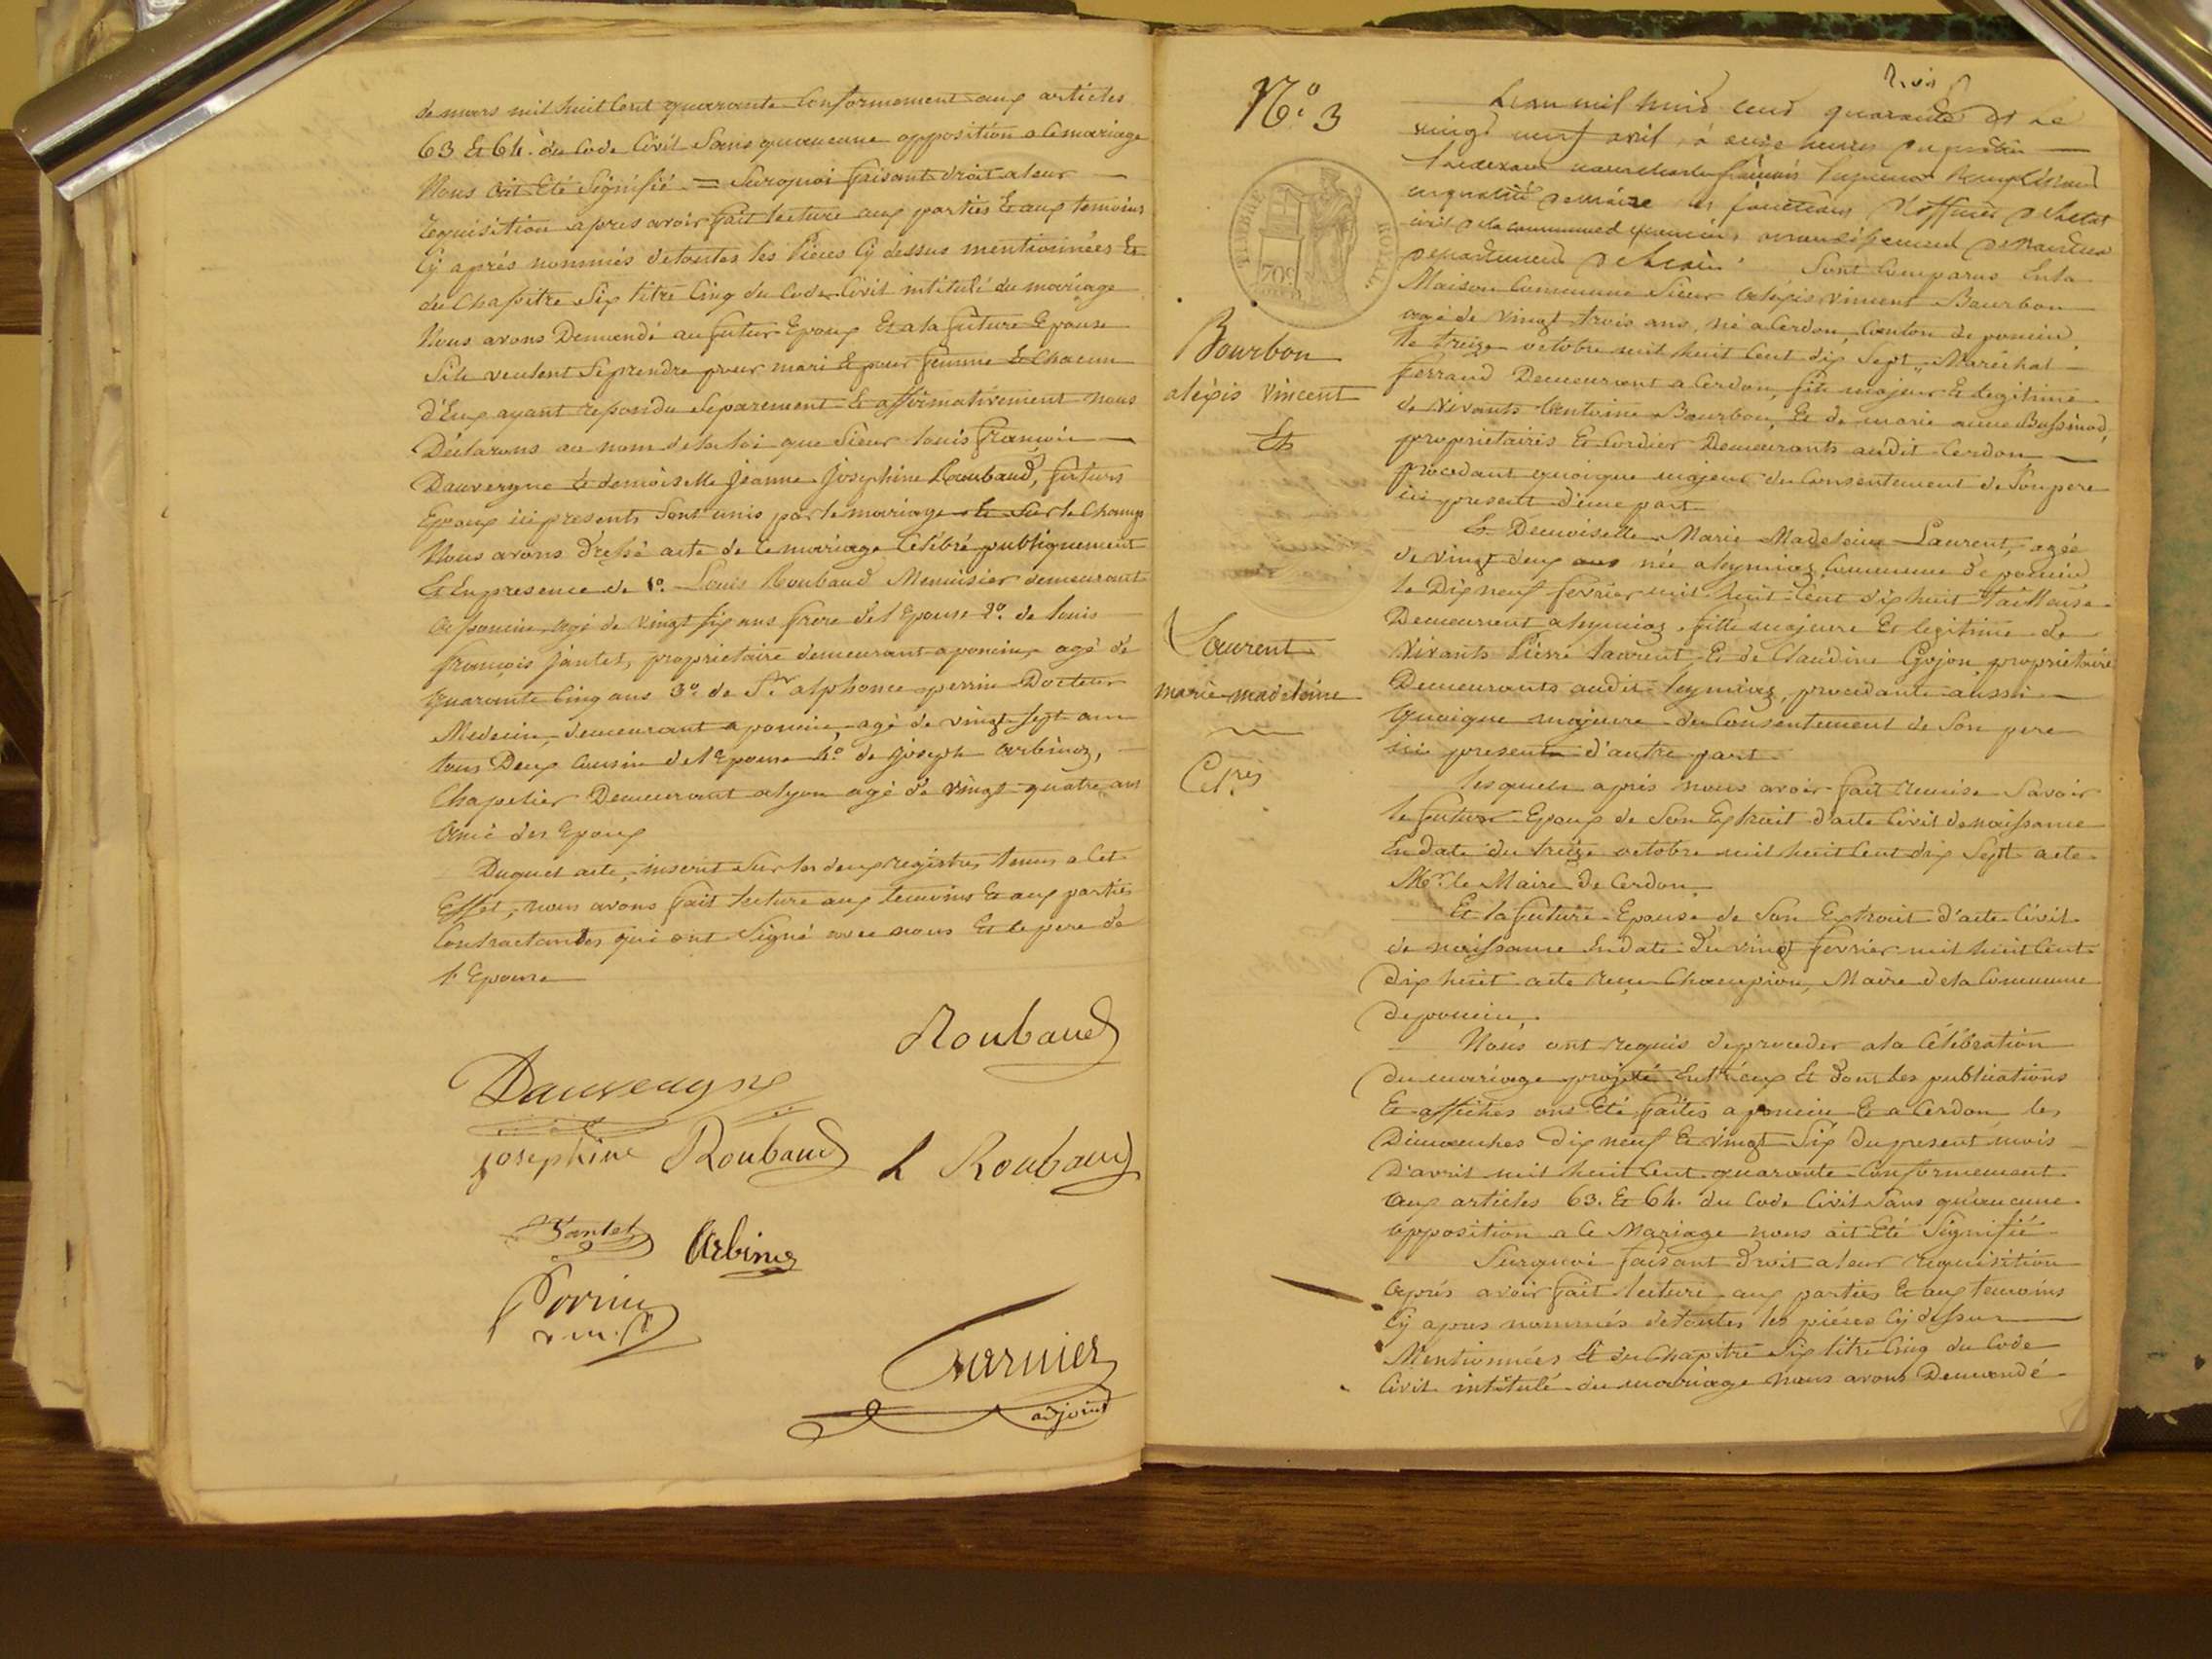 de mars mil huit Cent quarante Conformement aux articles
63 Et 64. du Code Civil Sans qu'aucune opposition a Ce mariage
Nous ait Eté Signifié = Surquoi faisant droit a leur
requisition apres avoir fait lecture aux parties Et aux temoins
Cÿ aprés nommés de toutes les Pieces Cÿ dessus mentionnées Et
du Chapitre Six titre Cinq du Code Civil intitulé du mariage
Nous avons Demandé au futur Epoux Et a la future Epouse
S'ils veulent Se prendre pour mari Et pour femme Et Chacun
d'Eux ayant repondu Separement Et affirmativement nous
Déclarons au nom de la loi que Sieur Louis François
Dauvergne Et demoiselle Jeanne Josephine Roubaud, futurs
Epoux ici presents Sont unis par le mariage Et Sur le Champ
Nous avons dressé acte de Ce mariage Célébré publiquement
Et En presence de 1o. Louis Roubaud Menuisier demeurant
a poncin, agé de vingt Six ans frere de l'Epouse 2o. de Louis
françois Jantet, proprietaire demeurant a poncin agé de
quarante Cinq ans 3o. de Sr. alphonce perrin Docteur
Medecin, demeurant a poncin, agé de vingt Sept ans
tous Deux Cousin de l'Epouse 4o. de Joseph Arbinoz,
Chapelier Demeurant a lyon agé de vingt quatre ans
Ami des Epoux
Duquel acte, inscrit Sur les deux registres tenus a Cet
Effet, nous avons fait lecture aux temoins Et aux parties
Contractantes qui ont Signé avec nous Et le pere de
l'Epouse
Roubaud
Dauvergne
Josephine Roubaud L Roubaud
Jantet Arbinoz
Perrin
Garnier
adjoint
trois
No. 3
L'an mil huit cent quarante et le
vingt neuf avril, à onze heures du matin
en qualité de maire et fonctions d'officier de l'état
civil de la commune de poncin, arrondissement de Nantua
departement de l'ain Sont Comparus En la
Maison Commune Sieur Aléxis Vincent Bourbon
agé de vingt trois ans, né a Cerdon, Canton de poncin,
le treize octobre mil huit Cent dix Sept, Maréchal
ferrand Demeurant a Cerdon, fils majeur Et legitime
de vivants Antoine Bourbon, Et de marie anne Bussinod,
proprietaires Et Cordier Demeurants audit Cerdon
procedant quoique majeur du Consentement de Son pere
ici present d'une part
Et Demoiselle Marie Madeleine Laurent, agée
de vingt deux ans née a leymiaz Commune de poncin
le Dix neuf fevrier mil huit Cent dix huit tailleuse
Demeurant a leymiaz, fille majeure Et legitime de
vivants Pierre Laurent, Et de Claudine Gojon, propriétaires
Demeurants audit leymiaz, procedante aussi
quoique majeure du Consentement de Son pere
ici present d'autre part
lesquels aprés nous avoir fait remise Savoir
le futur Epoux de Son Extrait d'acte Civil de naissance
En date du treize octobre mil huit Cent dix Sept acte
Mr. le Maire de Cerdon.
Et la future Epouse de Son Extrait d'acte Civil
de naissance En date du vingt fevrier mil huit Cent
dix huit acte reçu Champion, Maire de la Commune
de poncin.
Nous ont requis de proceder a la Célébration
du mariage projeté Entr'eux Et dont les publications
Et affiches ont Eté faites a poncin Et a Cerdon les
Dimanches dix neuf Et vingt Six du present mois
D'avril mil huit Cent quarante Conformement
Aux articles 63. Et 64. du Code Civil Sans qu'aucune
opposition a Ce Mariage nous ait Eté Signifié
Surquoi faisant droit a leur requisition
Aprés avoir fait lecture aux parties Et aux temoins
Cÿ apres nommés de toutes les piéces Cÿ dessus
Mentionnées Et du Chapitre Six titre Cinq du Code
Civil intitulé du mariage Nous avons Demandé
TIMBRE ROYAL
70c
Bourbon
aléxis Vincent
Et
Laurent
marie madeleine